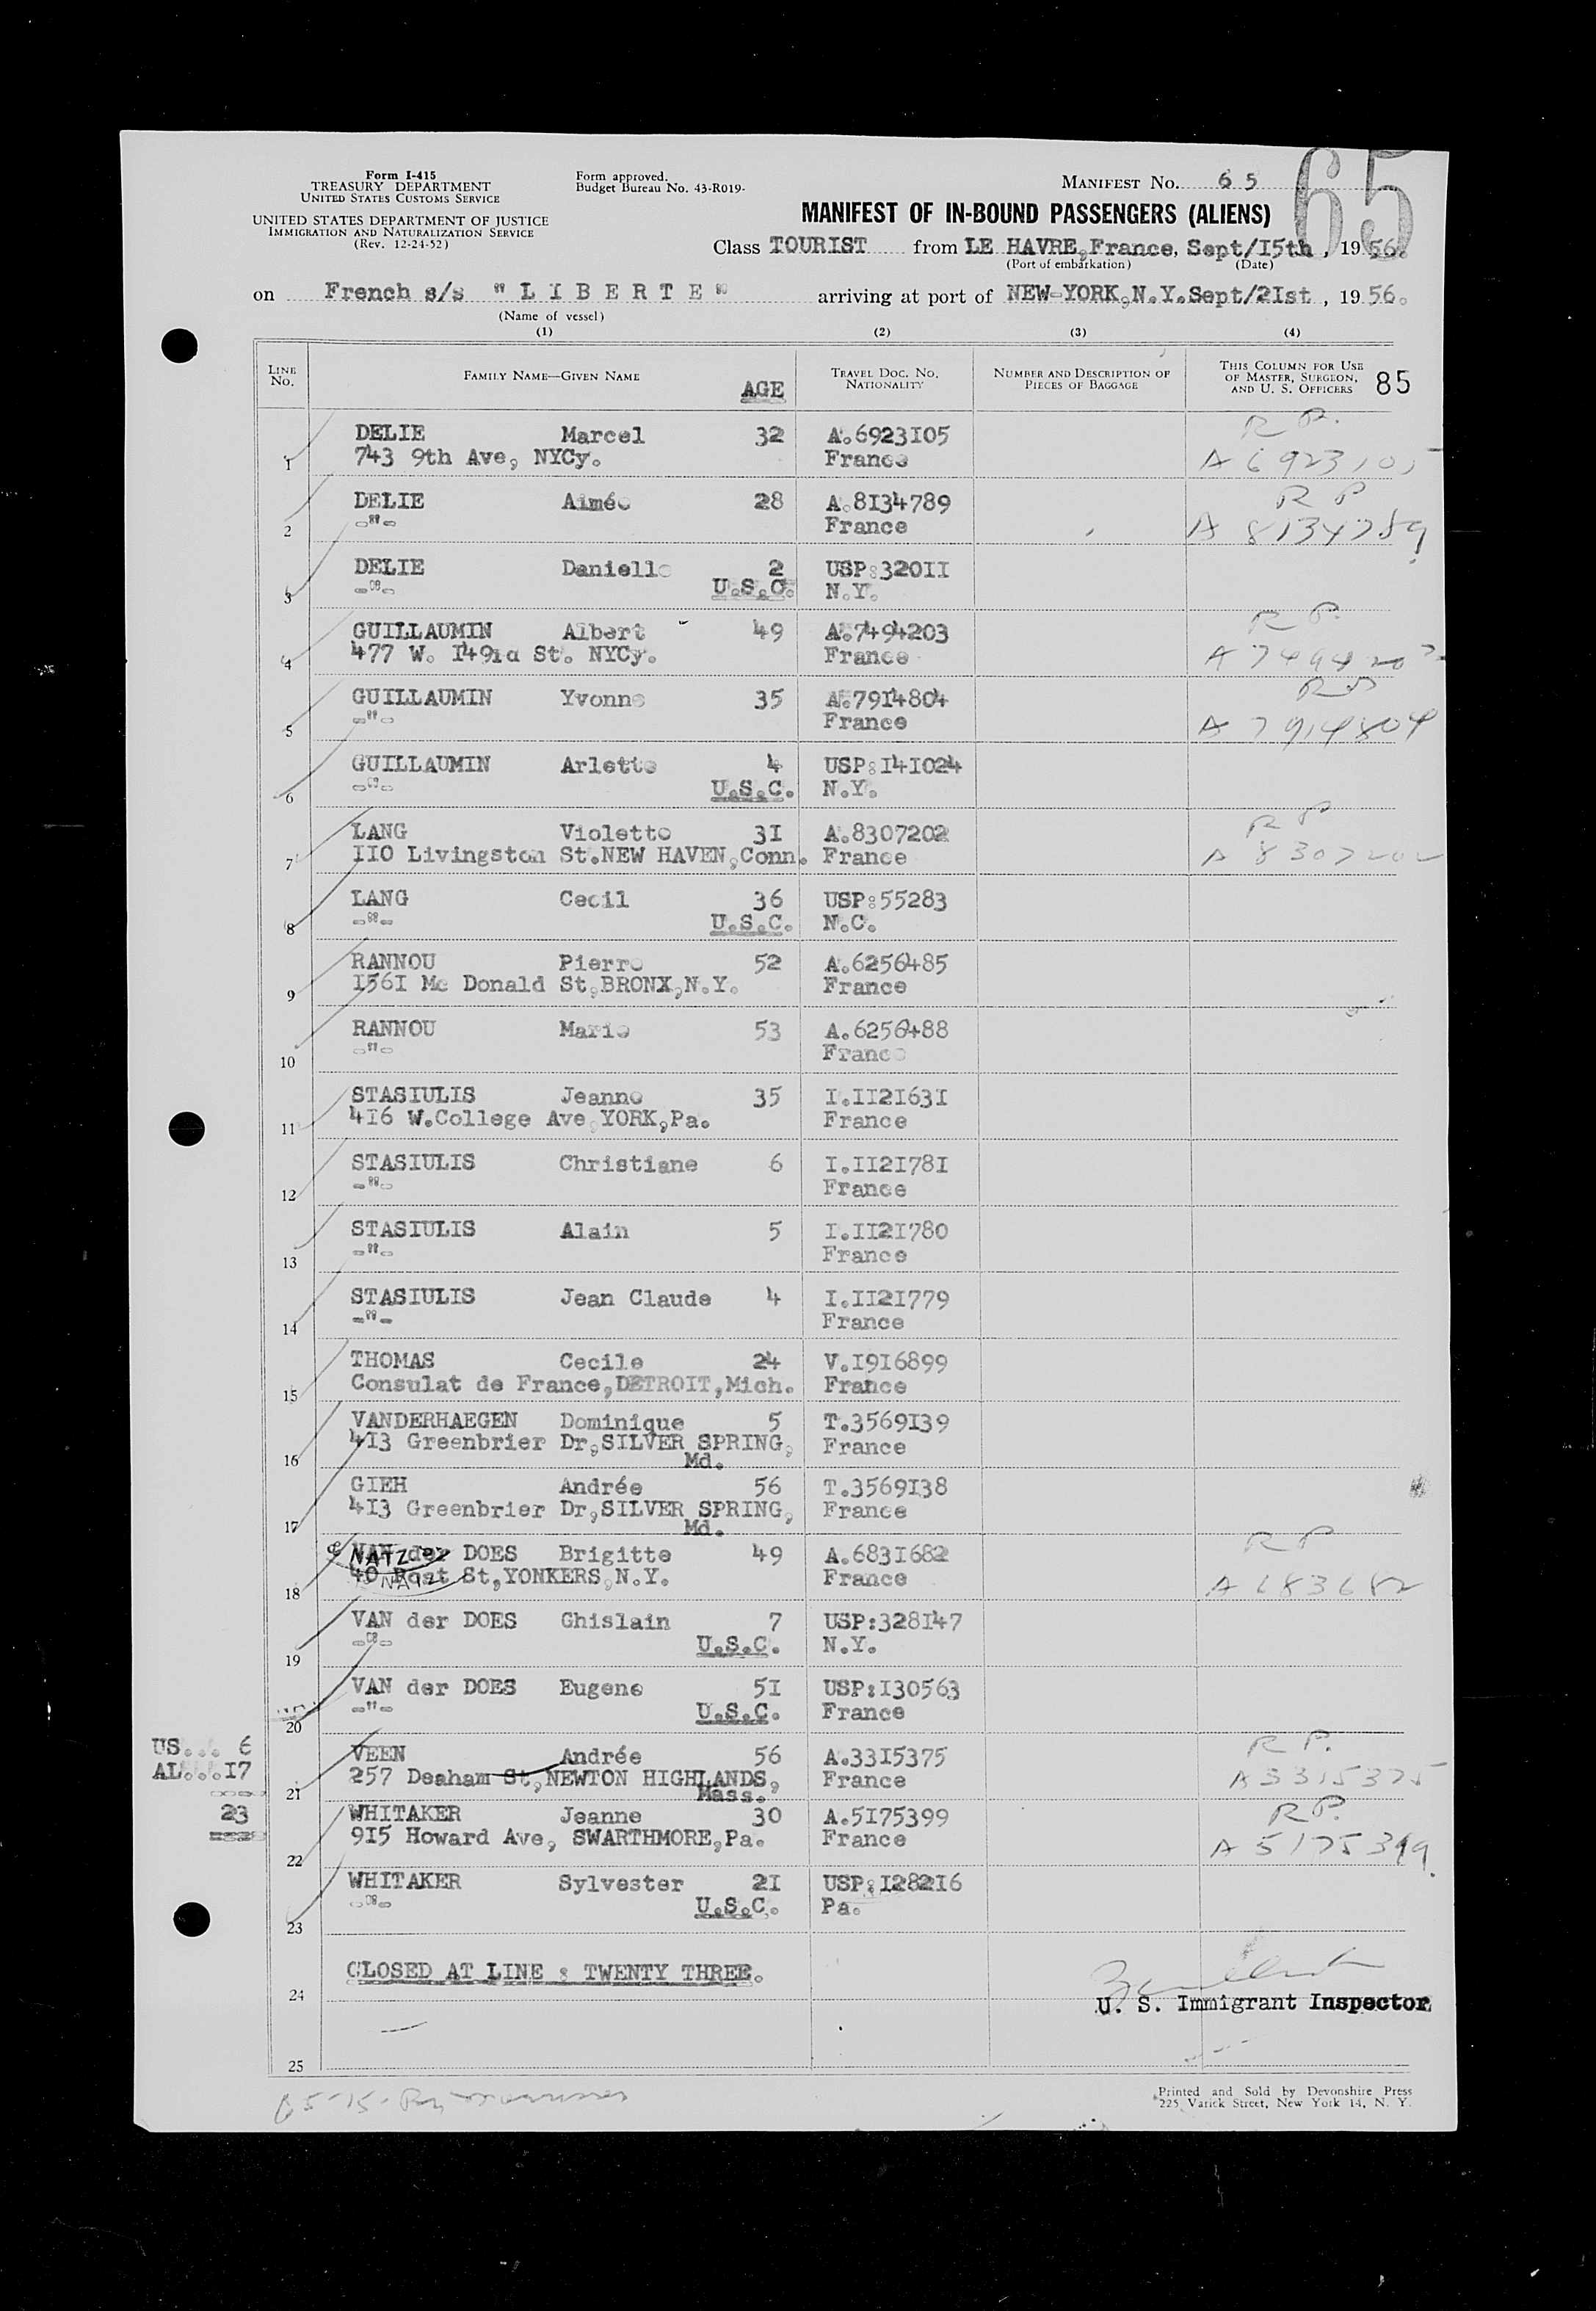 Form I-415
TREASURY DEPARTMENT
UNITED STATES CUSTOMS SERVICE
UNITED STATES DEPARTMENT OF JUSTICE
IMMIGRATION AND NATURALIZATION SERVICE
(Rev. 12-24-52)
Form approved.
Budget Bureau No. 43-R019-
MANIFEST NO. 65
65
MANIFEST OF IN-BOUND PASSENGERS (ALIENS)
Class TOURIST from LE HAVRE, France, Sept/15th, 1956.
(Port of embarkation) (Date)
on French s/s "LIBERTE" arriving at port of NEW-YORK, N.Y. Sept/2Ist, 1956.
(Name of vessel)
(1) (2) (3) (4)
LINE NO. FAMILY NAME—GIVEN NAME AGE TRAVEL DOC. NO. NATIONALITY NUMBER AND DESCRIPTION OF PIECES OF BAGGAGE THIS COLUMN FOR USE OF MASTER, SURGEON, AND U. S. OFFICERS 85
DELIE Marcel 32 A.6923I05 R P.
1 743 9th Ave, NYCy. France A 6923105
DELIE Aimée 28 A.8I34789 R P
2 -"- France A 8134789
DELIE Danielle 2 USP:320II
3 -"- U.S.C. N.Y.
GUILLAUMIN Albert 49 A.7494203 R P.
4 477 W. I49 St. NYCy. France A 7494203
GUILLAUMIN Yvonne 35 A.79I4804 R P
5 -"- France A 7914804
GUILLAUMIN Arlette 4 USP:I4I024
6 -"- U.S.C. N.Y.
LANG Violette 3I A.8307202 R P
7 II0 Livingston St.NEW HAVEN,Conn. France A 8307202
LANG Cecil 36 USP:55283
8 -"- U.S.C. N.C.
RANNOU Pierre 52 A.6256485
9 I56I Mc Donald St,BRONX,N.Y. France
RANNOU Marie 53 A.6256488
10 -"- France
STASIULIS Jeanne 35 I.II2I63I
11 4I6 W.College Ave,YORK,Pa. France
STASIULIS Christiane 6 I.II2I78I
12 -"- France
STASIULIS Alain 5 I.II2I780
13 -"- France
STASIULIS Jean Claude 4 I.II2I779
14 -"- France
THOMAS Cecile 24 V.I9I6899
15 Consulat de France,DETROIT,Mich. France
VANDERHAEGEN Dominique 5 T.3569I39
16 4I3 Greenbrier Dr,SILVER SPRING, France
Md.
GIEH Andrée 56 T.3569I38
17 4I3 Greenbrier Dr,SILVER SPRING, France
Md.
NATZ
VAN der DOES Brigitte 49 A.683I682 R P
18 40 Post St,YONKERS,N.Y. France A 683682
NATZ
VAN der DOES Ghislain 7 USP:328I47
19 -"- U.S.C. N.Y.
VAN der DOES Eugene 5I USP:I30563
20 -"- U.S.C. France
US... 6
AL...I7
23
VEEN Andrée 56 A.33I5375 R P.
21 257 Deaham St,NEWTON HIGHLANDS, France A3315375
Mass.
WHITAKER Jeanne 30 A.5I75399 R P.
22 9I5 Howard Ave, SWARTHMORE,Pa. France A 5175399
WHITAKER Sylvester 2I USP:I282I6
23 -"- U.S.C. Pa.
24 CLOSED AT LINE : TWENTY THREE.
U. S. Immigrant Inspector
25
Printed and Sold by Devonshire Press
225 Varick Street, New York 14, N. Y.